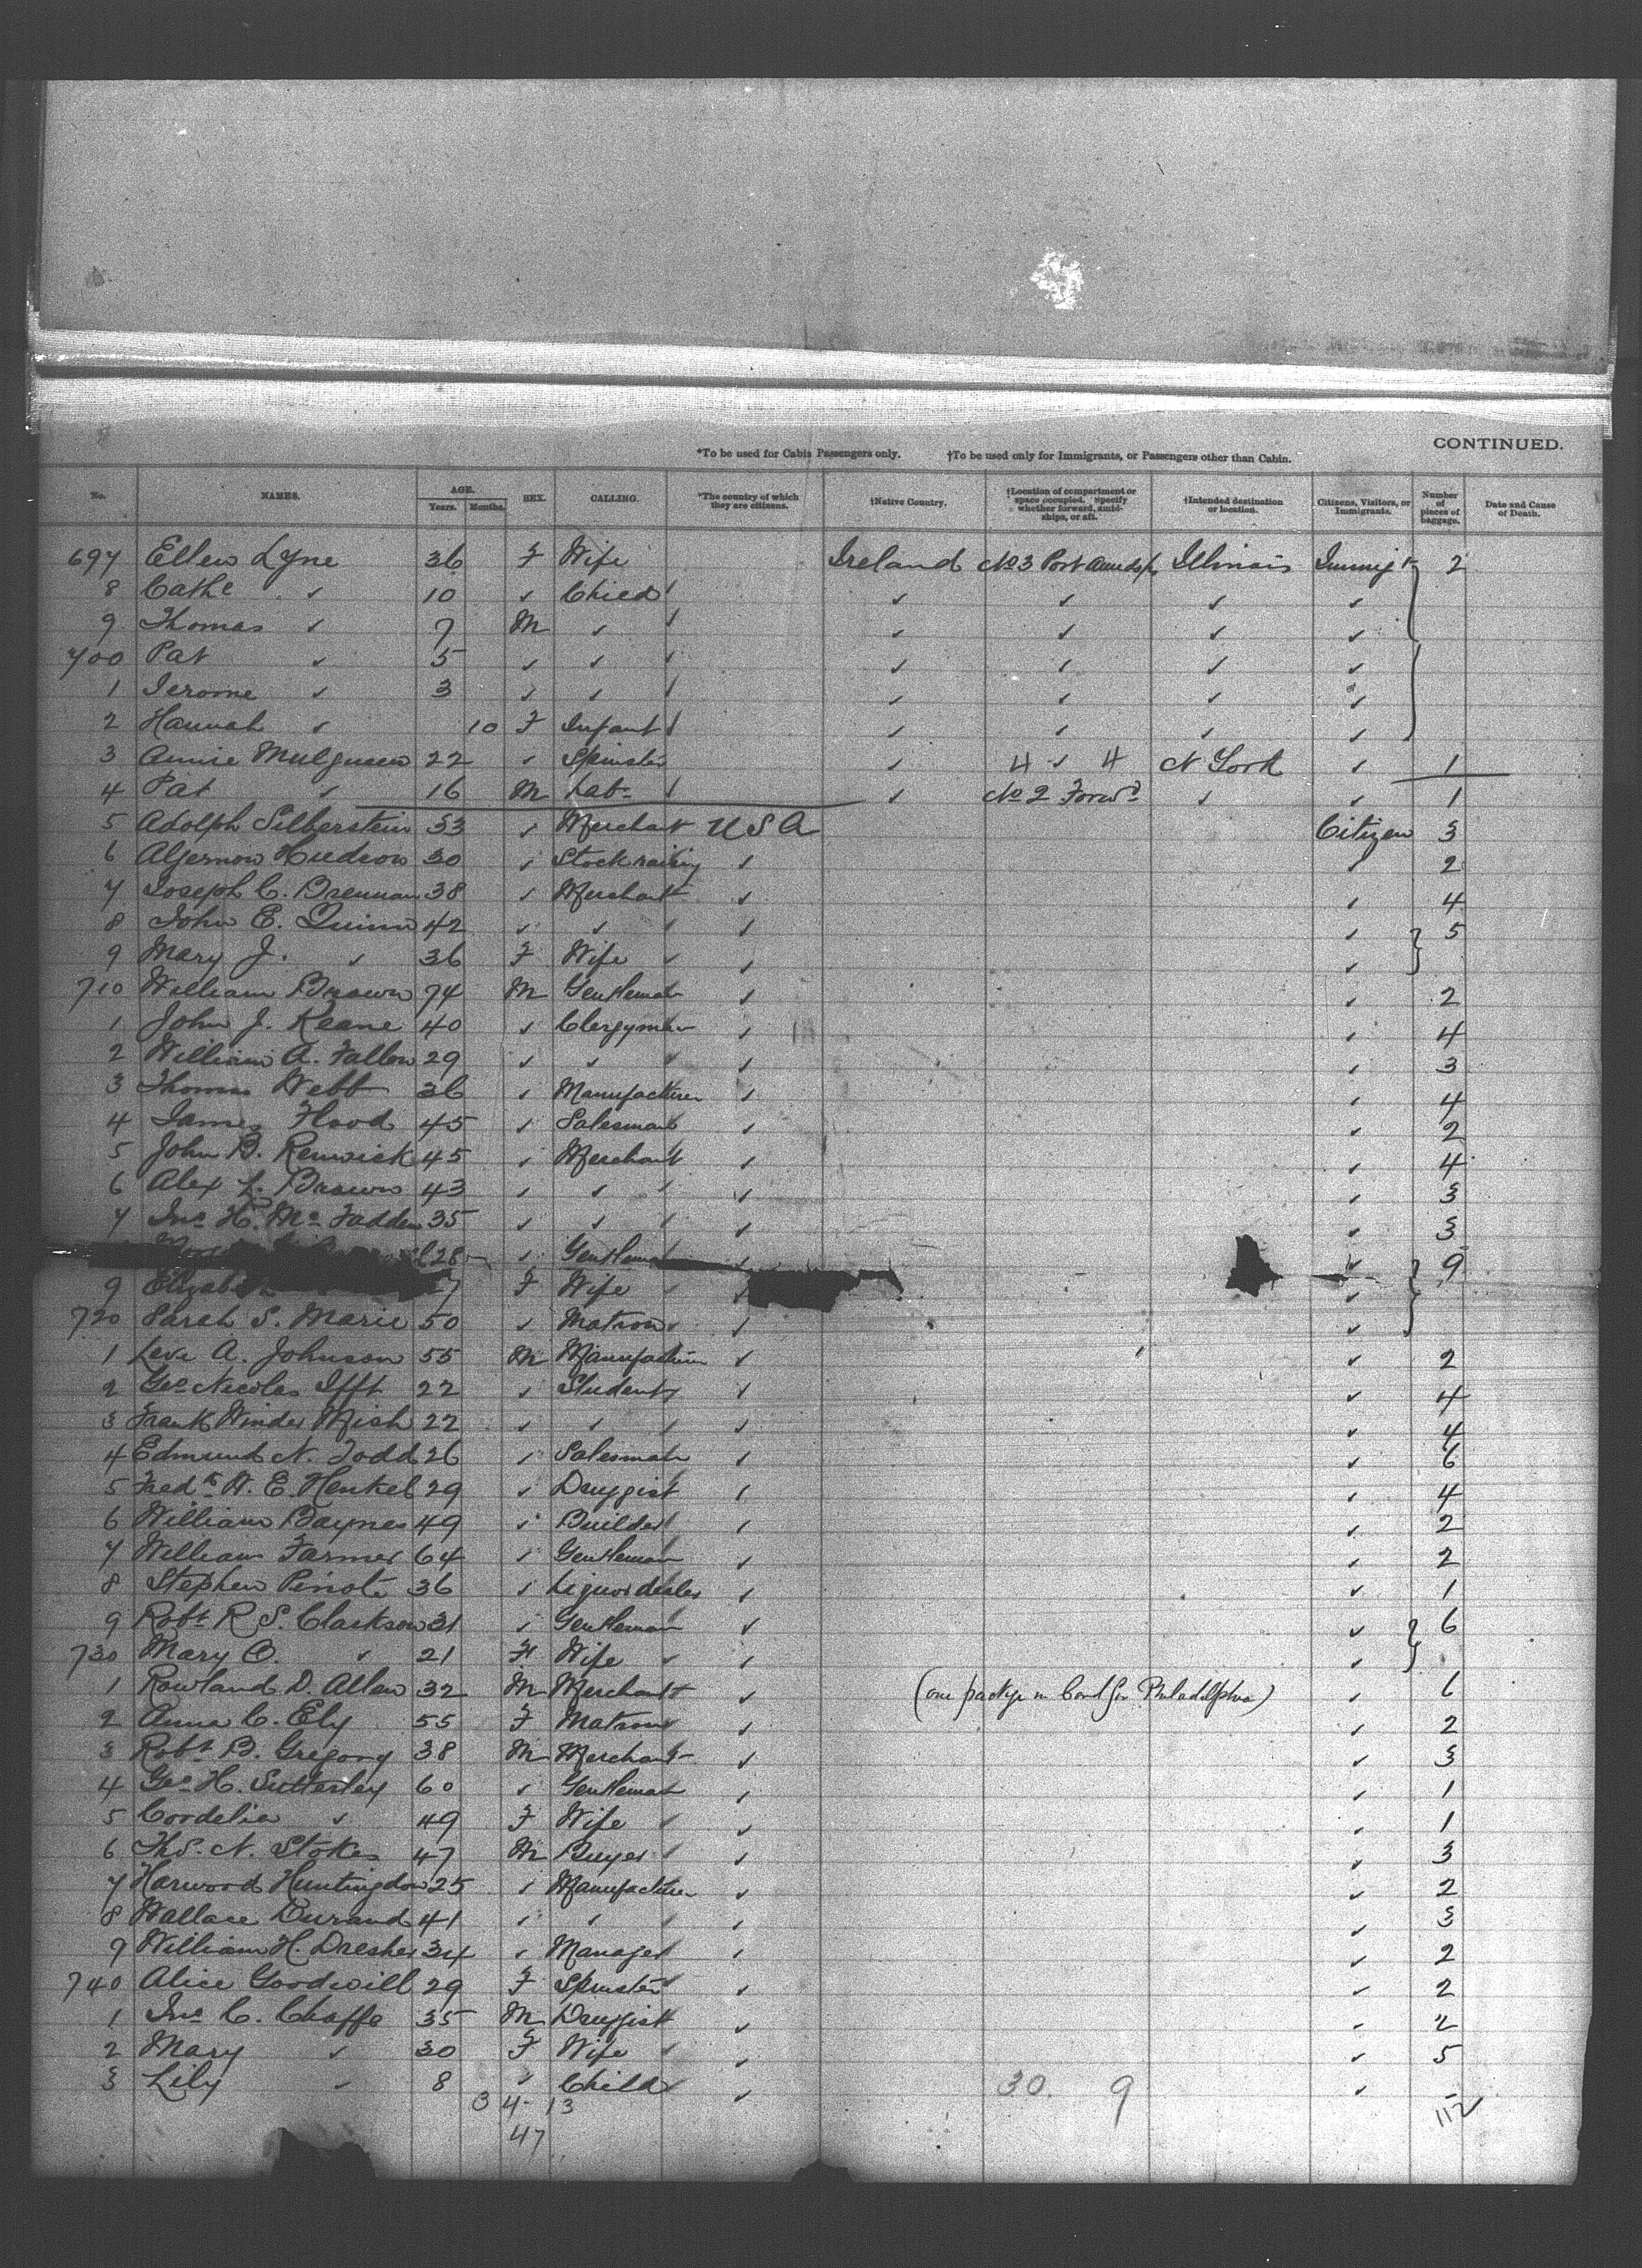 CONTINUED.
*To be used for Cabin Passengers only. †To be used only for Immigrants, or Passengers other than Cabin.
No. NAMES. AGE. Years. Months. SEX. CALLING. *The country of which they are citizens. †Native Country. †Location of compartment or space occupied, specify whether forward, amidships, or aft. †Intended destination or location. Citizens, Visitors, or Immigrants. Number of pieces of baggage. Date and Cause of Death.
697 Ellen Lyne 36 F Wife Ireland No 3 Port Illinois Immigt 2
8 Cathe ✓ 10 ✓ Child ✓ ✓ ✓ ✓
9 Thomas ✓ 7 M ✓ ✓ ✓ ✓ ✓
700 Pat ✓ 5 ✓ ✓ ✓ ✓ ✓ ✓
1 Jerome ✓ 3 ✓ ✓ ✓ ✓ ✓ ✓
2 Hannah ✓ 10 F Infant ✓ ✓ ✓ ✓
3 Annie Mulqueen 22 ✓ Spinster ✓ 4 ✓ 4 N York ✓ 1
4 Pat ✓ 16 M Labr ✓ No 2 Forwd ✓ ✓ 1
5 Adolph Silberstein 53 ✓ Merchant U S A Citizen 3
6 Algernon Hudson 30 ✓ Stockraising ✓ ✓ 2
7 Joseph C. Brennan 38 ✓ Merchant ✓ ✓ 4
8 John E. Quinn 42 ✓ ✓ ✓ ✓ 5
9 Mary J. ✓ 36 F Wife ✓ ✓
710 William Brown 74 M Gentleman ✓ ✓ 2
1 John J. Keane 40 ✓ Clergyman ✓ ✓ 4
2 William A. Fallon 29 ✓ ✓ ✓ ✓ 3
3 Thomas Webb 36 ✓ Manufacturer ✓ ✓ 4
4 James Flood 45 ✓ Salesman ✓ ✓ 2
5 John B. Renwick 45 ✓ Merchant ✓ ✓ 4
6 Alex L. Brown 43 ✓ ✓ ✓ ✓ 3
7 Jno H. Mc Fadden 35 ✓ ✓ ✓ ✓ 3
28 ✓ Gentleman ✓ ✓ 9
9 F Wife ✓ ✓
720 Sarah S. Marie 50 ✓ Matron ✓ ✓
1 Levi A. Johnson 55 M Manufacturer ✓ ✓ 2
2 Geo Nicolas Ifft 22 ✓ Student ✓ ✓ 4
3 Frank Winder Mish 22 ✓ ✓ ✓ ✓ 4
4 Edmund N. Todd 26 ✓ Salesman ✓ ✓ 6
5 Fredk W. E. Henkel 29 ✓ Druggist ✓ ✓ 4
6 William Baynes 49 ✓ Builder ✓ ✓ 2
7 William Farmer 64 ✓ Gentleman ✓ ✓ 2
8 Stephen Pinot 36 ✓ Liquor dealer ✓ ✓ 1
9 Robt R S. Clarkson 31 ✓ Gentleman ✓ ✓ 6
730 Mary C. ✓ 21 F Wife ✓ ✓
1 Rowland D. Allen 32 M Merchant ✓ (one package in bond for Philadelphia) ✓ 6
2 Anna C. Ely 55 F Matron ✓ ✓ 2
3 Robt B. Gregory 38 M Merchant ✓ ✓ 3
4 Geo H. Sutterley 60 ✓ Gentleman ✓ ✓ 1
5 Cordelia ✓ 49 F Wife ✓ ✓ 1
6 Ths. N. Stokes 47 M Buyer ✓ ✓ 3
7 Harwood Huntingdon 25 ✓ Manufacturer ✓ ✓ 2
8 Wallace Durand 41 ✓ ✓ ✓ ✓ 3
9 William H. Dresher 34 ✓ Manager ✓ ✓ 2
740 Alice Goodwill 29 F Spinster ✓ ✓ 2
1 Jno C. Chaffe 35 M Druggist ✓ ✓ 2
2 Mary ✓ 30 F Wife ✓ ✓ 5
3 Lily ✓ 8 ✓ Child ✓ 30. 9 ✓ -
34-13 112
47